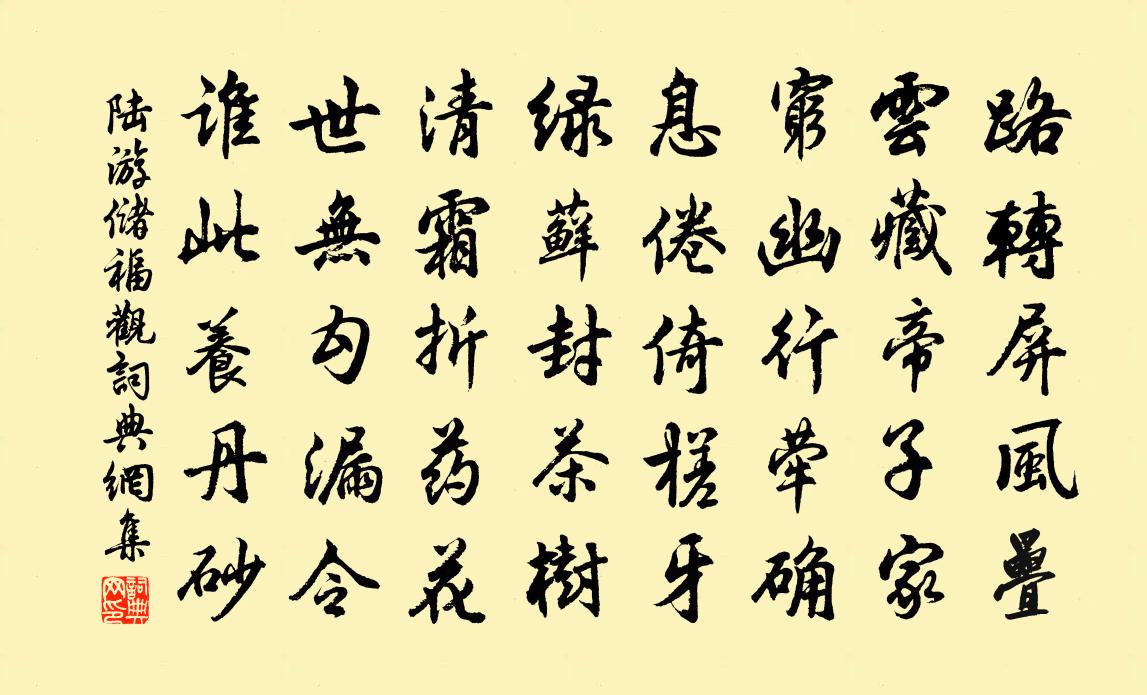 路轉屏風疊
雲藏帝子家
窮幽行荦确
息倦倚槎牙
緑蘚封茶樹
清霜折药花
世無勾漏令
誰此養丹砂
陸游儲福觀詞典網集
詞典网印